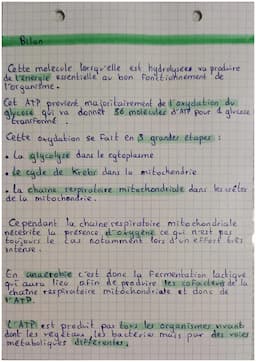 Bilan
Cette molécule lorsqu'elle est hydrolysée va produire
de l'énergie essentielle au bon fonctionnement de
l'organisme.
Cet ATP provient majoritairement de l'oxydation du
glucose qui va donner 36 molécules d'ATP pour 1 glucose
transformé.
Cette oxydation se fait en 3 grandes étapes :
• La glycolyse dans le cytoplasme
• Le cycle de Krebs dans la mitochondrie
• La chaîne respiratoire mitochondriale dans les crêtes
de la mitochondrie.
Cependant la chaine respiratoire mitochondriale
nécessite la présence d'oxygène ce qui n'est pas
toujours le cas notamment lors d'un effort très
intense.
En anaérobie c'est donc la Fermentation lactique
qui aura lieu afin de produire les cofacteurs de la
chaîne respiratoire mitochondriale et donc de
l'ATP.
L'ATP est produit par tous les organismes vivants
dont les végétaux, les bactéries mais par des voies
métaboliques différentes.